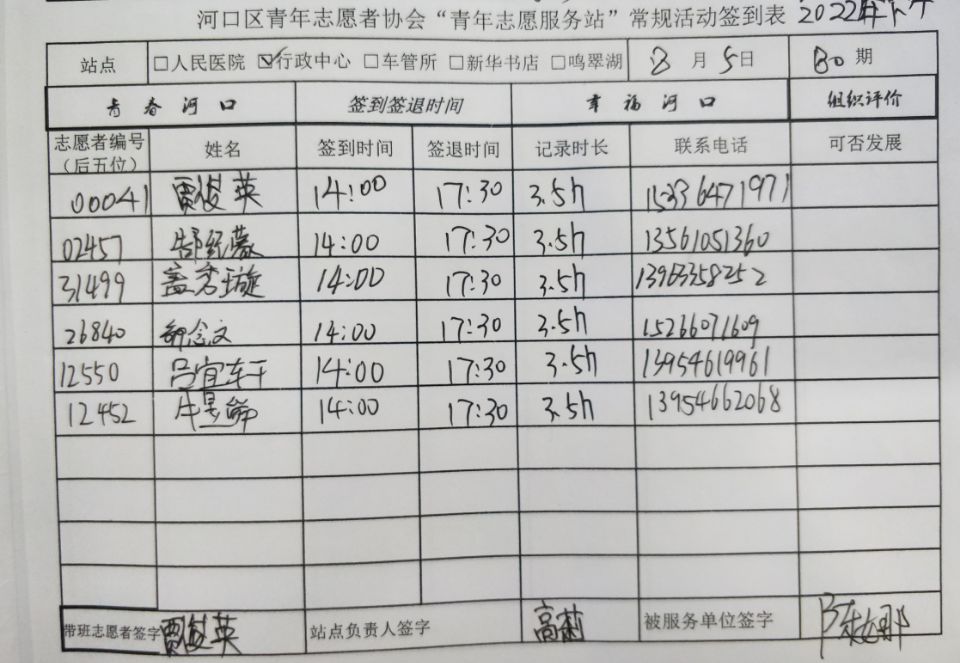 河口区青年志愿者协会“青年志愿服务站”常规活动签到表 2022年下午
站点 □人民医院 ☑行政中心 □车管所 □新华书店 □鸣翠湖 8月5日 80期
青春河口 签到签退时间 幸福河口 组织评价
志愿者编号（后五位） 姓名 签到时间 签退时间 记录时长 联系电话 可否发展
00041 贾俊英 14:00 17:30 3.5h 15336471971
02457 14:00 17:30 3.5h 13561051360
31499 盖秀璇 14:00 17:30 3.5h
26840 念文 14:00 17:30 3.5h 15266071609
12550 吕宜轩 14:00 17:30 3.5h 13954619961
12452 牛昱 14:00 17:30 3.5h 13954662068
带班志愿者签字 贾俊英 站点负责人签字 高莉 被服务单位签字 陈娜